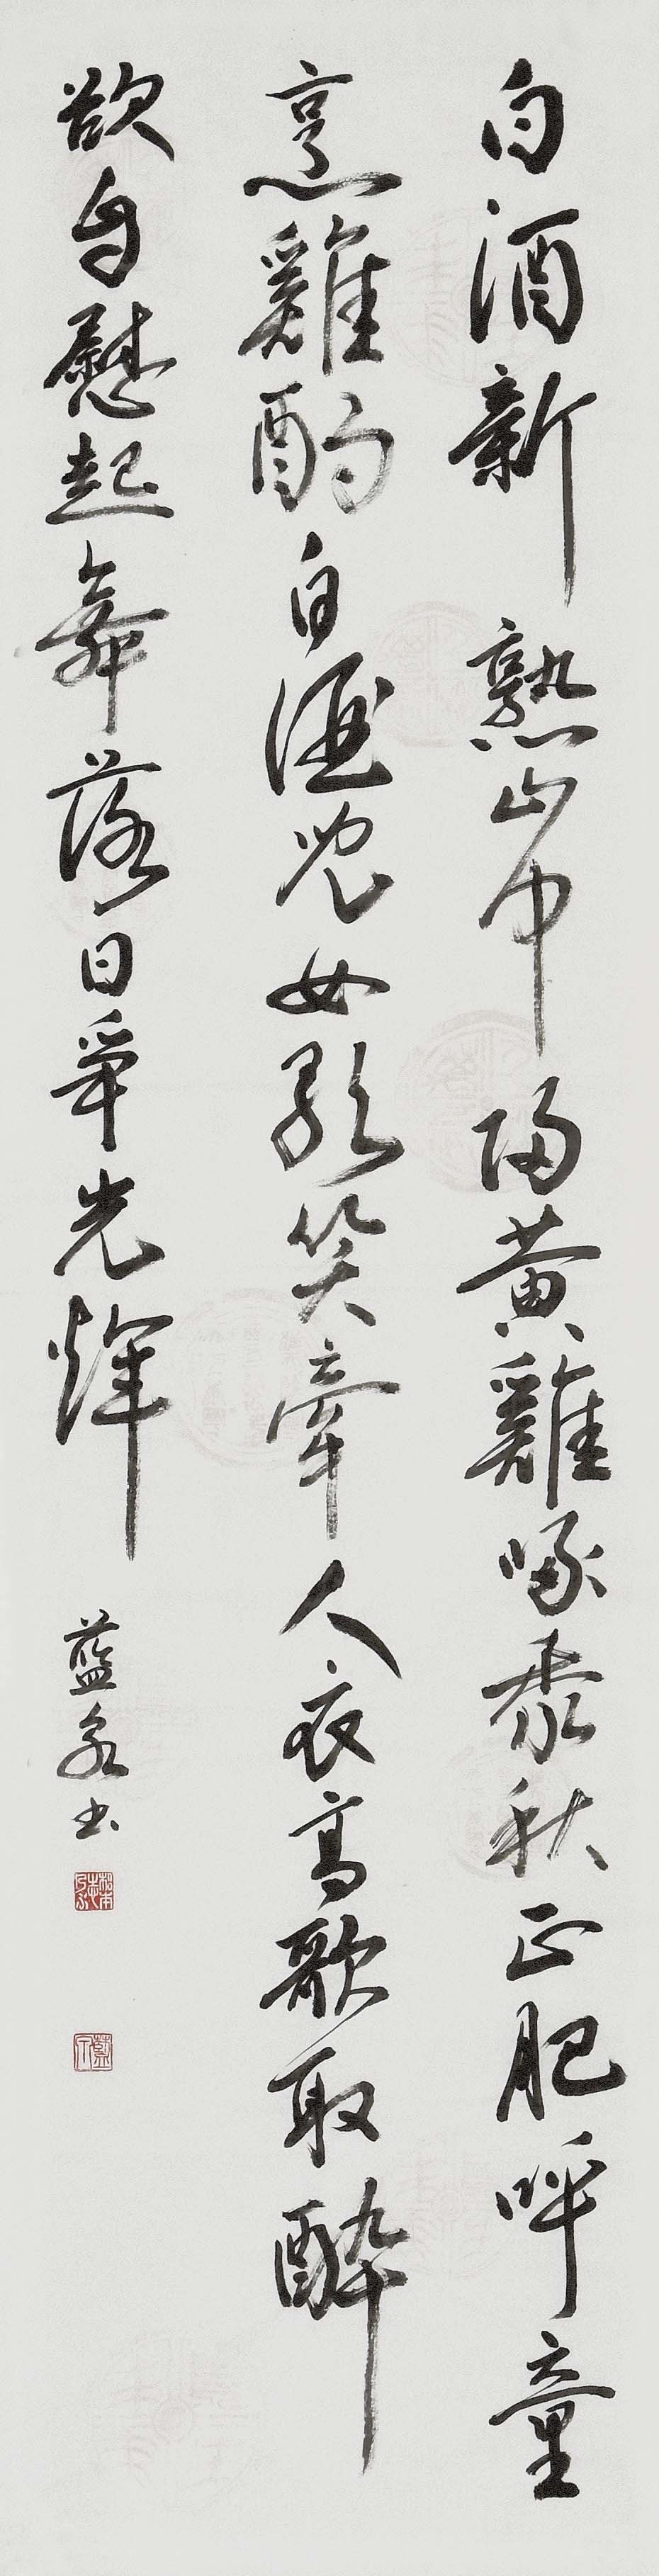 白酒新熟山中歸黃雞啄黍秋正肥呼童
烹雞酌白酒兒女歌笑牽人衣高歌取醉
欲自慰起舞落日爭光輝
藍泉书